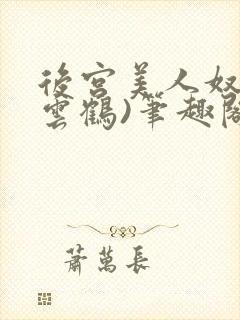 後宮美人奴
雲鶴)筆趣閣
蕭萬長